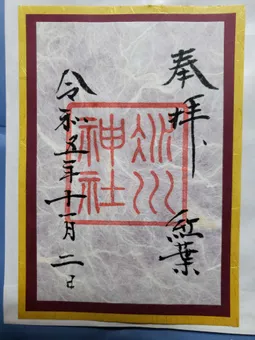 奉拝、
紅葉
氷川
神社
令和五年十一月二日